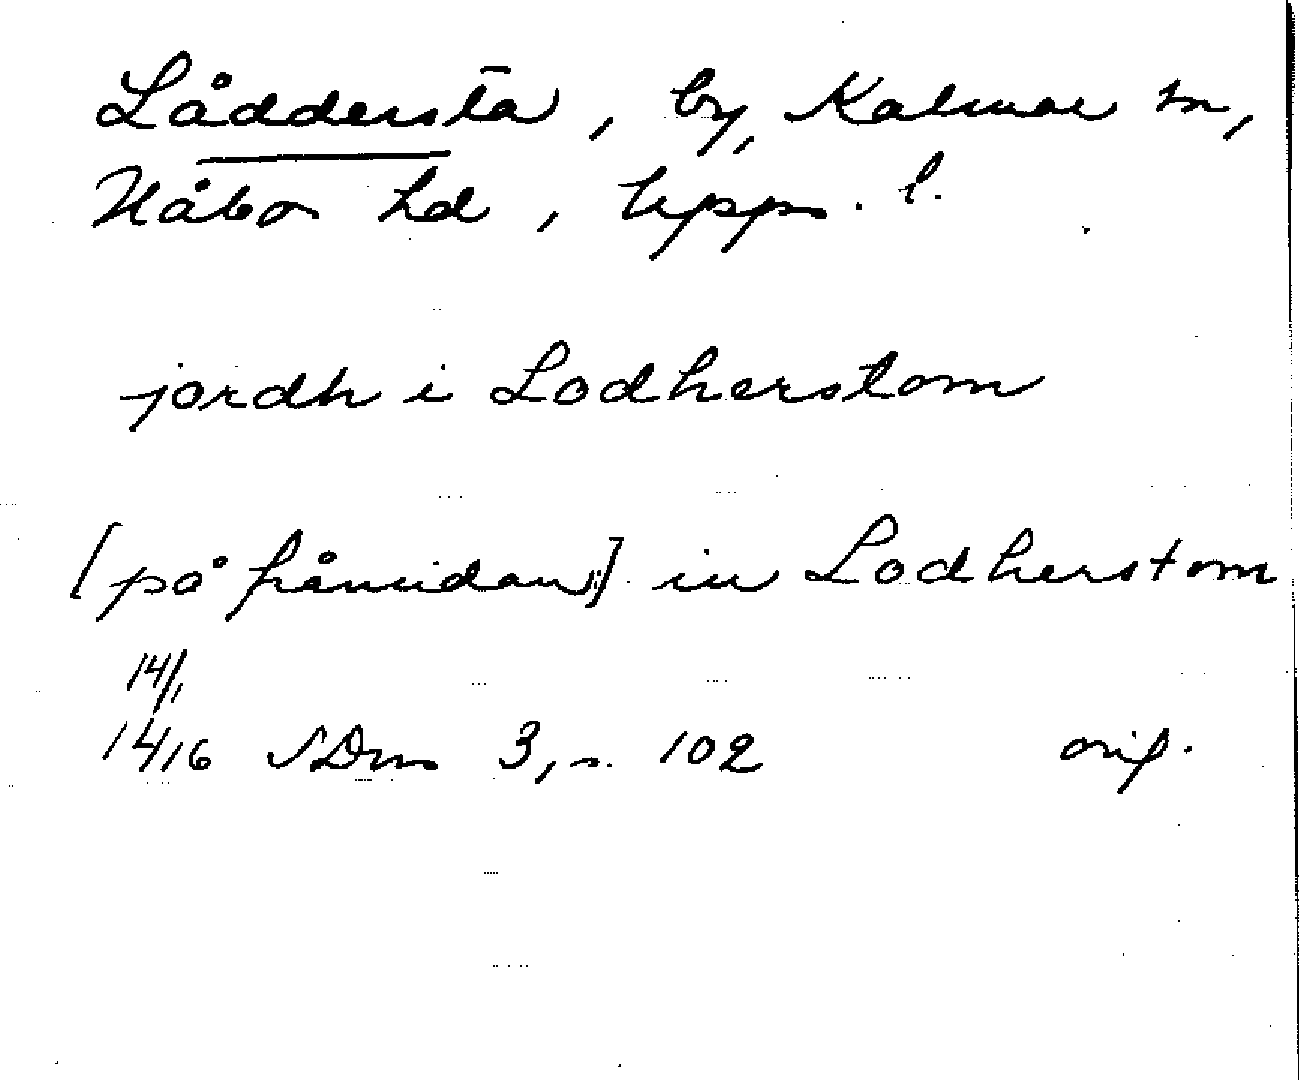 Låddersta, by, Kalmar sn,
Håbo hd, Upps. l.
jordh i Lodherstom
[på frånsidan:] in Lodherstom
14/1
1416 SDns 3, s. 102 orig.